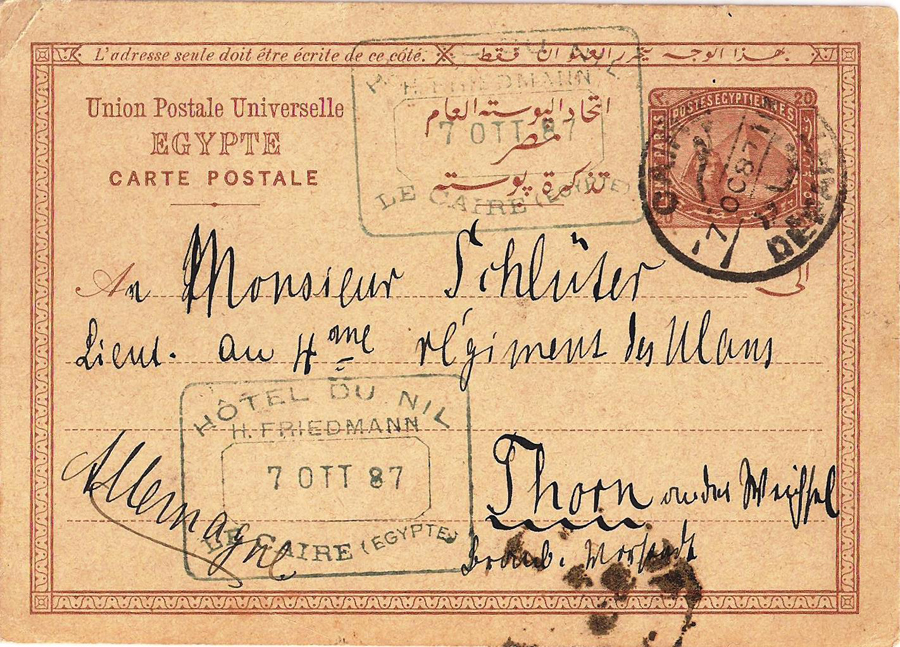 L'adresse seule doit être écrite de ce côté.
بهذا الوجه يحرر العنوان فقط
Union Postale Universelle
EGYPTE
CARTE POSTALE
اتحاد البوسته العام
مصر
تذكرة بوسته
HÔTEL DU NIL
H. FRIEDMANN
7 OTT 87
LE CAIRE (EGYPTE)
POSTES EGYPTIENNES
20
PARAS
7 OC 87
A Monsieur Schlüter
الى
Lieut. au 4me régiment des Ulans
HÔTEL DU NIL
H. FRIEDMANN
7 OTT 87
LE CAIRE (EGYPTE)
Allemagne
Thorn an der Weichsel
Bromb. Vorstadt